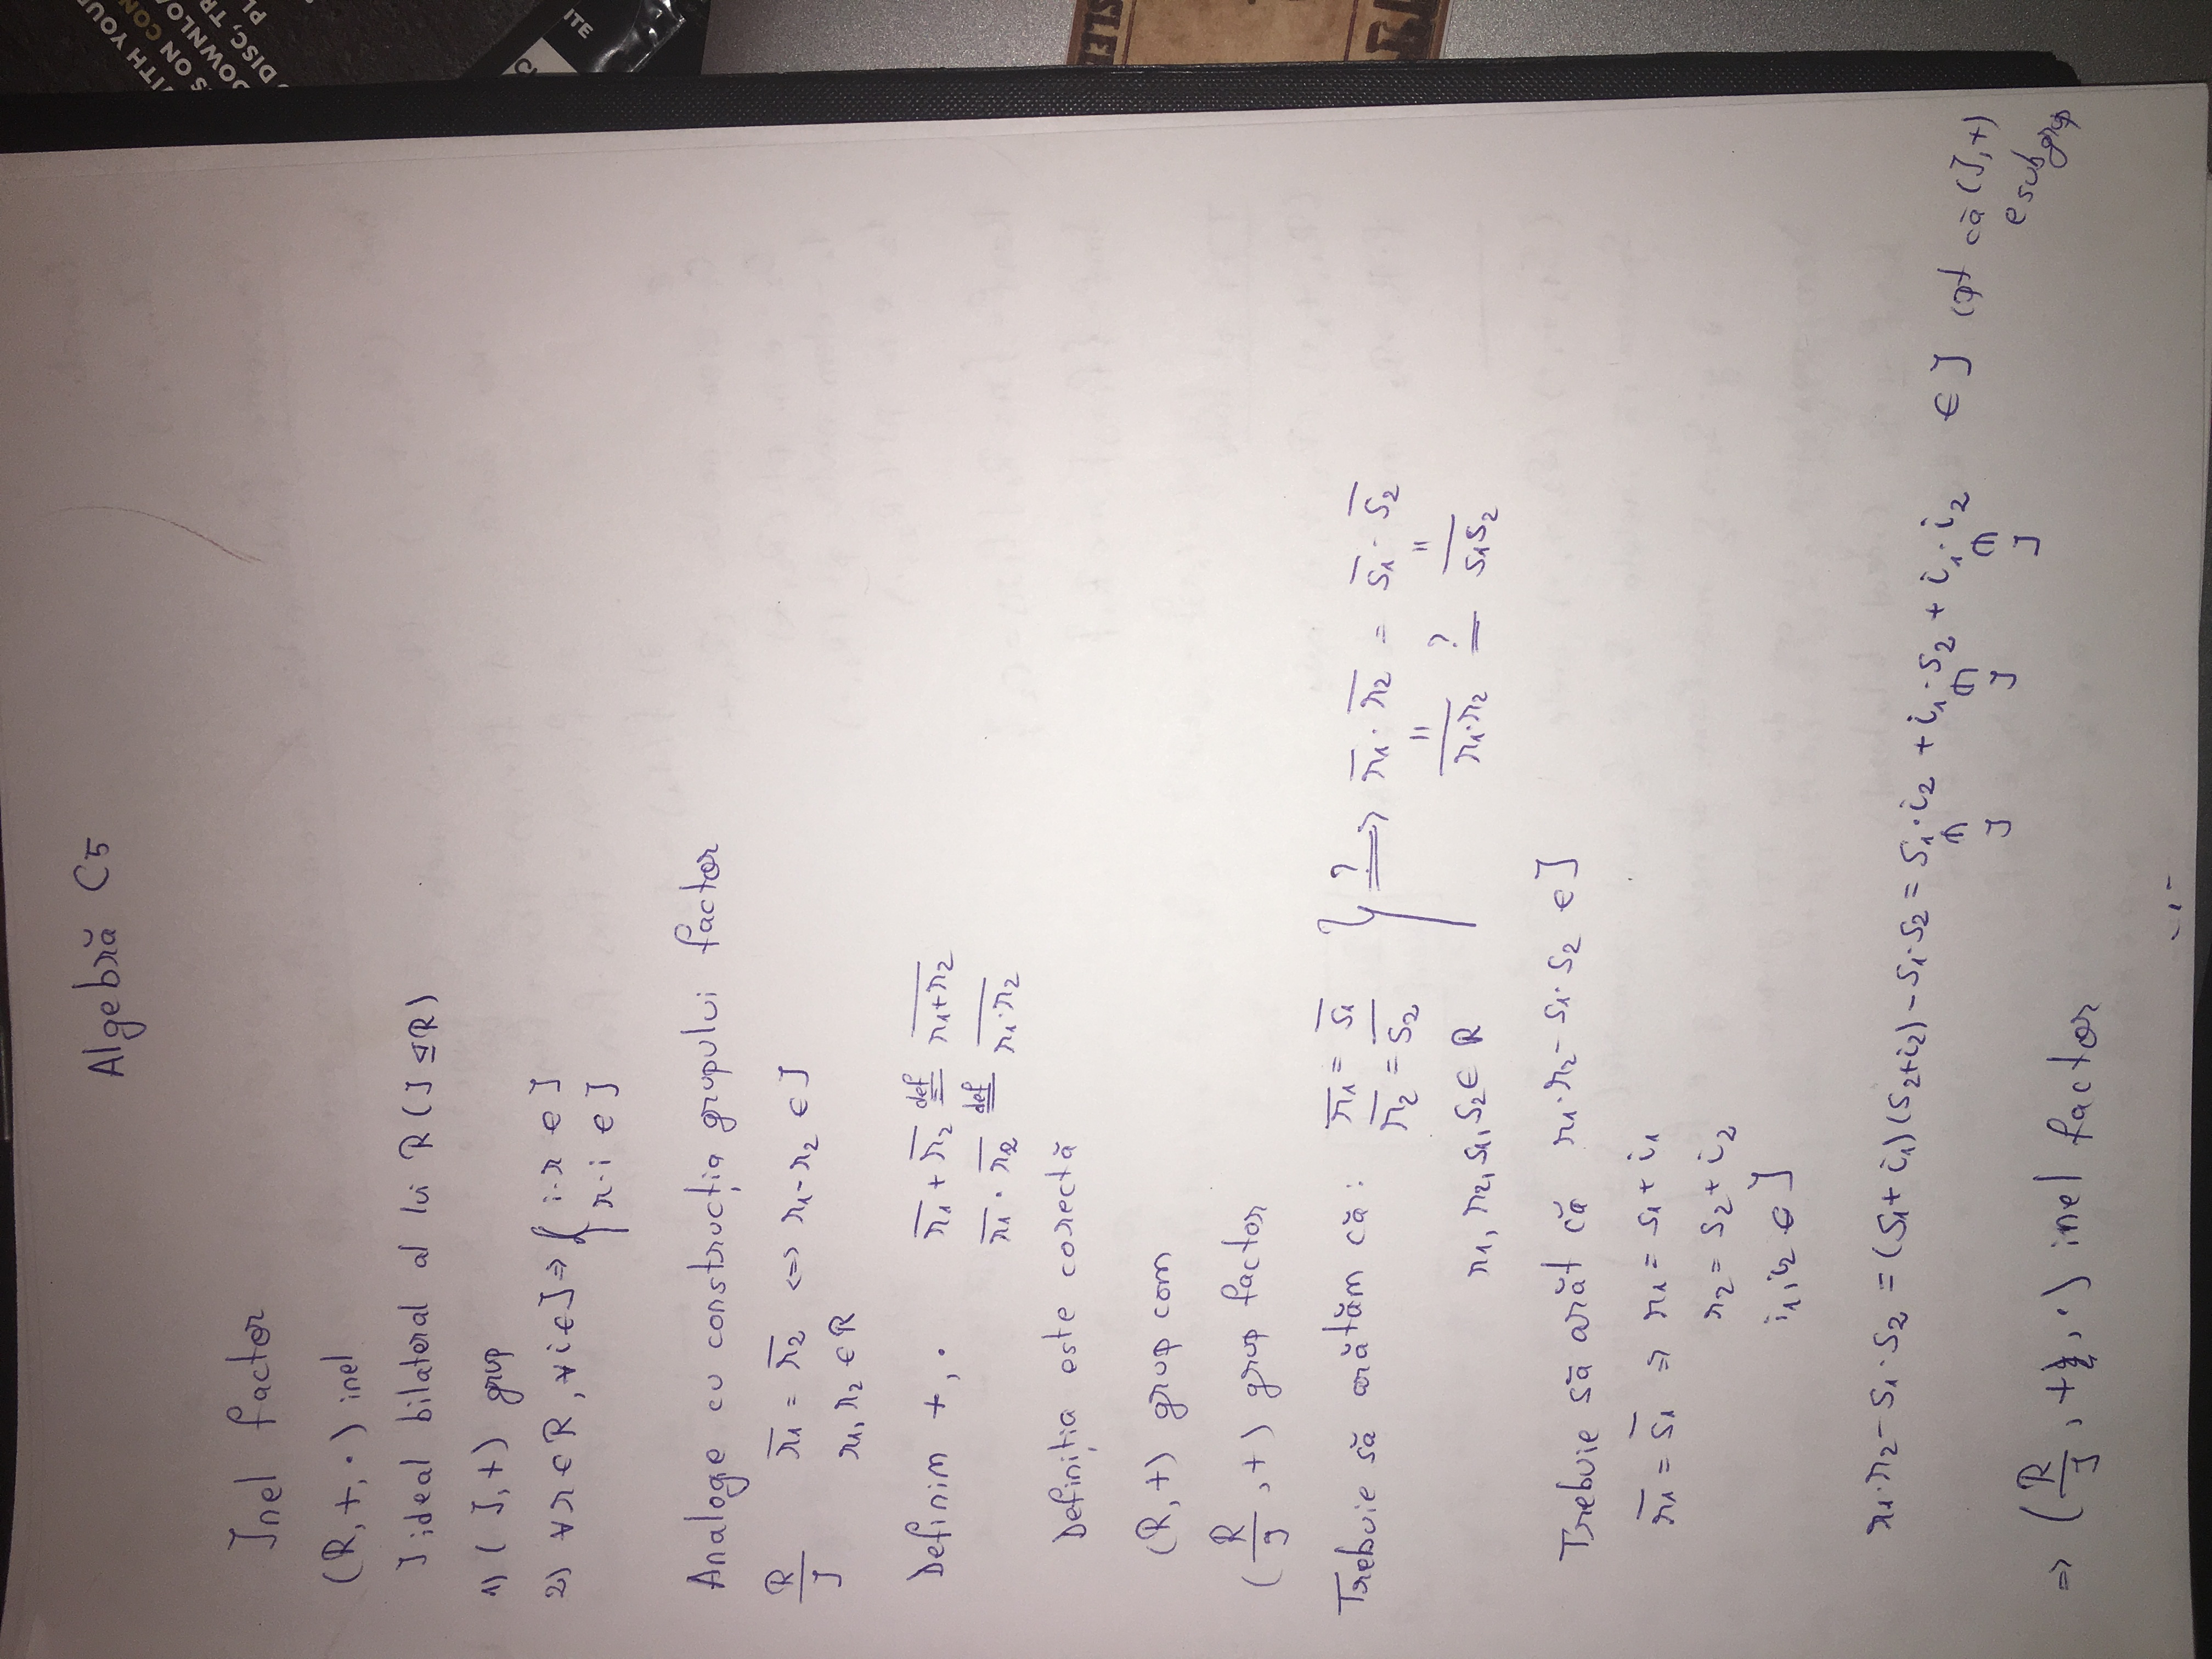 Algebră C5
Inel factor
(R, +, ·) inel
I ideal bilateral al lui R (I ⊴ R)
1) (I, +) grup
2) ∀ r ∈ R, ∀ i ∈ I ⇒ { i·r ∈ I
r·i ∈ I
Analoge cu construcția grupului factor
R/I   r̅₁ = r̅₂ ⟺ r₁ - r₂ ∈ I
r₁, r₂ ∈ R
Definim +, ·   r̅₁ + r̅₂ def= \overline{r₁+r₂}
r̅₁ · r̅₂ def= \overline{r₁·r₂}
Definiția este corectă
(R, +) grup com
(R/I, +) grup factor
Trebuie să arătăm că: r̅₁ = s̅₁
r̅₂ = s̅₂ } ?⟹ r̅₁ · r̅₂ = s̅₁ · s̅₂
r₁, r₂, s₁, s₂ ∈ R   \overline{r₁·r₂} ?= \overline{s₁s₂}
Trebuie să arăt că r₁·r₂ - s₁·s₂ ∈ I
r̅₁ = s̅₁ ⇒ r₁ = s₁ + i₁
r₂ = s₂ + i₂
i₁, i₂ ∈ I
r₁·r₂ - s₁·s₂ = (s₁ + i₁)(s₂+i₂) - s₁·s₂ = s₁·i₂ + i₁·s₂ + i₁·i₂ ∈ I că (I, +)
∈ I ∈ I ∈ I e subgrup
⇒ (R/I, +, ·) inel factor
-1-
WITH YOUR
S ON CON
DOWNLOA
DISC, TR
PL
ITE
SLEE